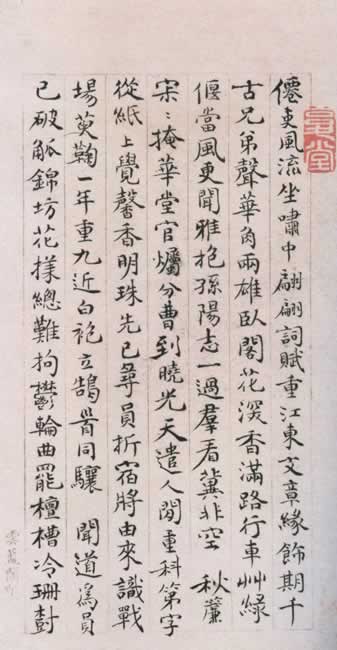 僊吏風流坐嘯中翩翩詞賦重江東文章緣飾期千
古兄弟聲華角兩雄臥閣花深香滿路行車艸綠
偃當風更聞雅抱孫陽志一過羣看冀非空 秋簾
掩華堂官爥分曹到曉光天遣人閒重科第字
從紙上覺馨香明珠先已尋員折宿將由來識戰
場萸鞠一年重九近白袍立鵠同驤 聞道爲員
已破觚錦坊花樣總難拘鬱輪曲罷檀槽冷珊尌